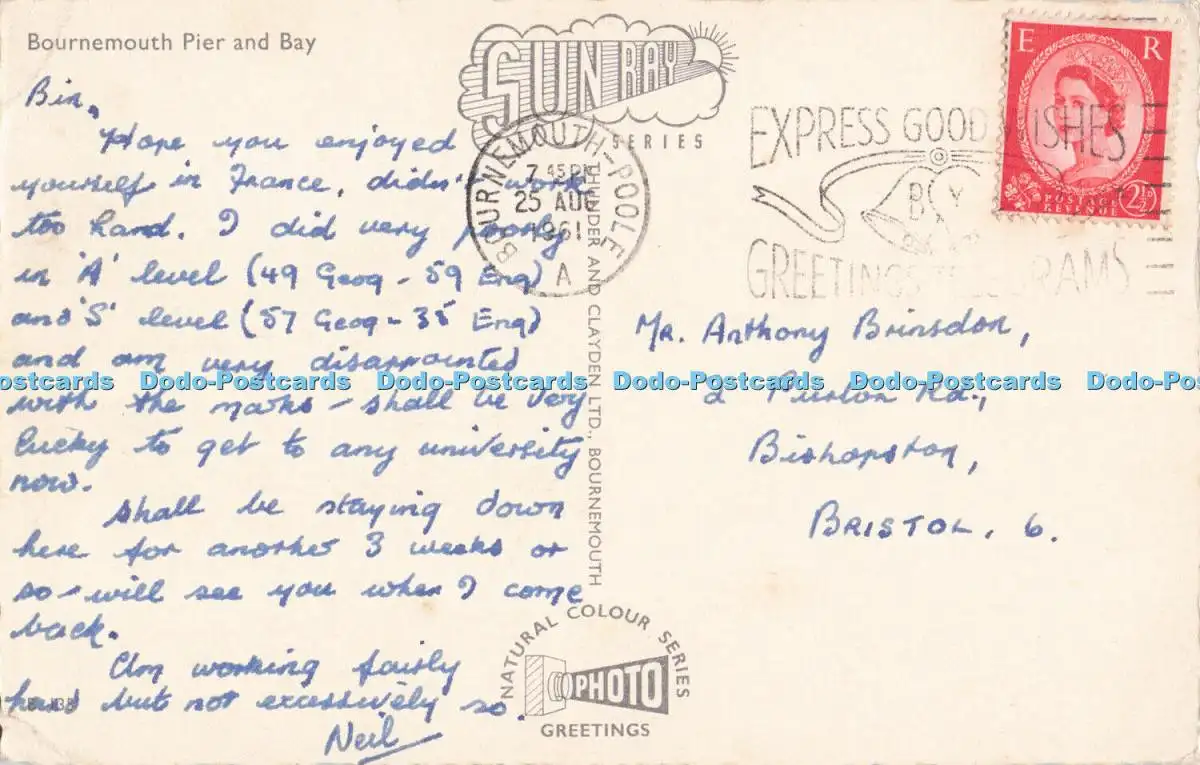 Bournemouth Pier and Bay
SUN RAY
SERIES
Bin,
Hope you enjoyed
yourself in France, didn't work
too hard. I did very poorly
in 'A' level (49 Geog - 59 Eng)
and 'S' level (57 Geog - 35 Eng)
and am very disappointed
with the marks - shall be very
lucky to get to any university
now.
Shall be staying down
here for another 3 weeks or
so - will see you when I come
back.
Am working fairly
hard but not excessively so.
Neil
BOURNEMOUTH-POOLE
7 45 PM
25 AUG
1961
A
THUNDER AND CLAYDEN LTD., BOURNEMOUTH
EXPRESS GOOD WISHES
BY
GREETINGS TELEGRAMS
E R
POSTAGE
REVENUE
2½D
Mr. Anthony Brinsdon,
2 Purton Rd.,
Bishopston,
BRISTOL. 6.
NATURAL COLOUR SERIES
PHOTO
GREETINGS
Dodo-Postcards Dodo-Postcards Dodo-Postcards Dodo-Postcards Dodo-Postcards Dodo-P